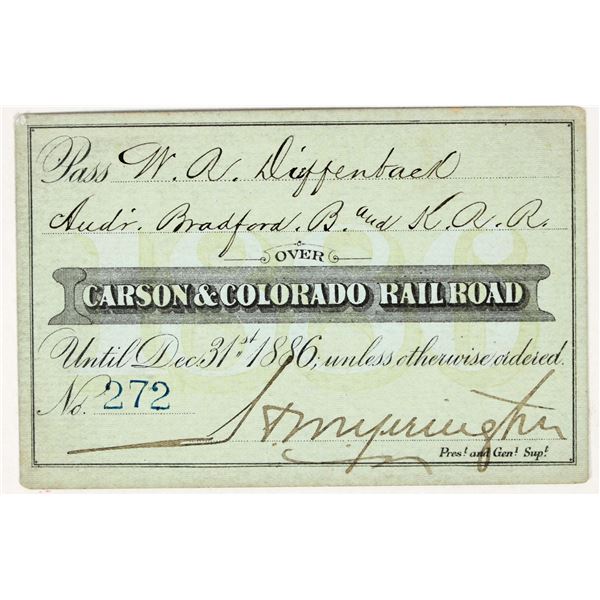 Pass W. R. Diffenbach
Audr. Bradford. B. and K. R. R.
OVER
CARSON & COLORADO RAILROAD
Until Dec. 31st 1886, unless otherwise ordered.
No. 272
Prest. and Genl. Supt.
1886